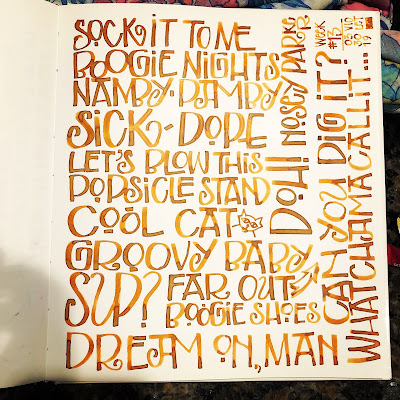 SOCK IT TO ME
BOOGIE NIGHTS
NAMBY-PAMBY
SICK-DOPE
LET'S BLOW THIS
POPSICLE STAND
COOL CAT
GROOVY BABY
SUP? FAR OUT
BOOGIE SHOES
DREAM ON, MAN
DOH! NOSEY PARKER
CAN YOU DIG IT?
WHATCHAMACALLIT...
WEEK
#13